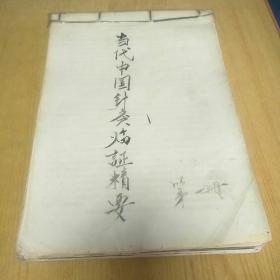 当代中国针灸临証精要
第一册